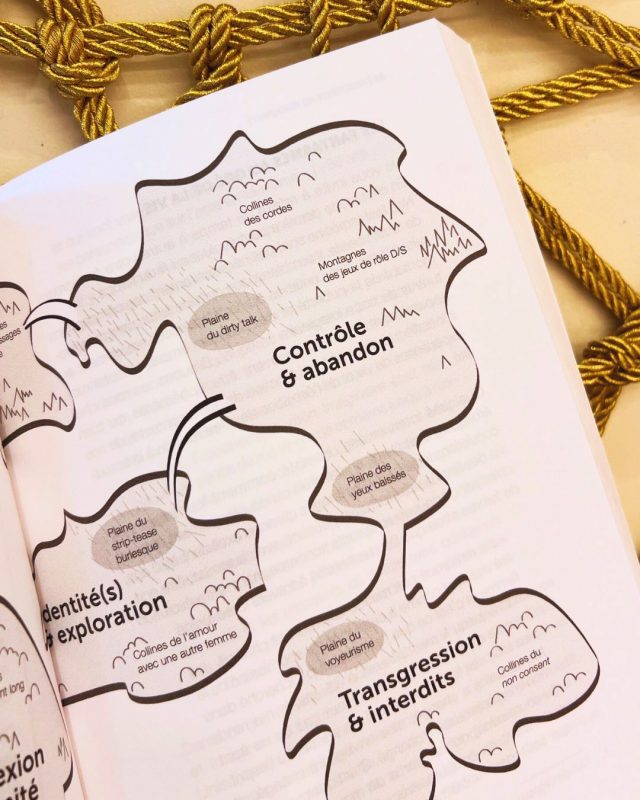 Collines
des cordes
Montagnes
des jeux de rôle D/S
Plaine
du dirty talk
Contrôle
& abandon
Plaine des
yeux baissés
Plaine du
strip-tease
burlesque
dentité(s)
& exploration
Collines de l'amour
avec une autre femme
Plaine du
voyeurisme
Transgression
& interdits
Collines du
non consent